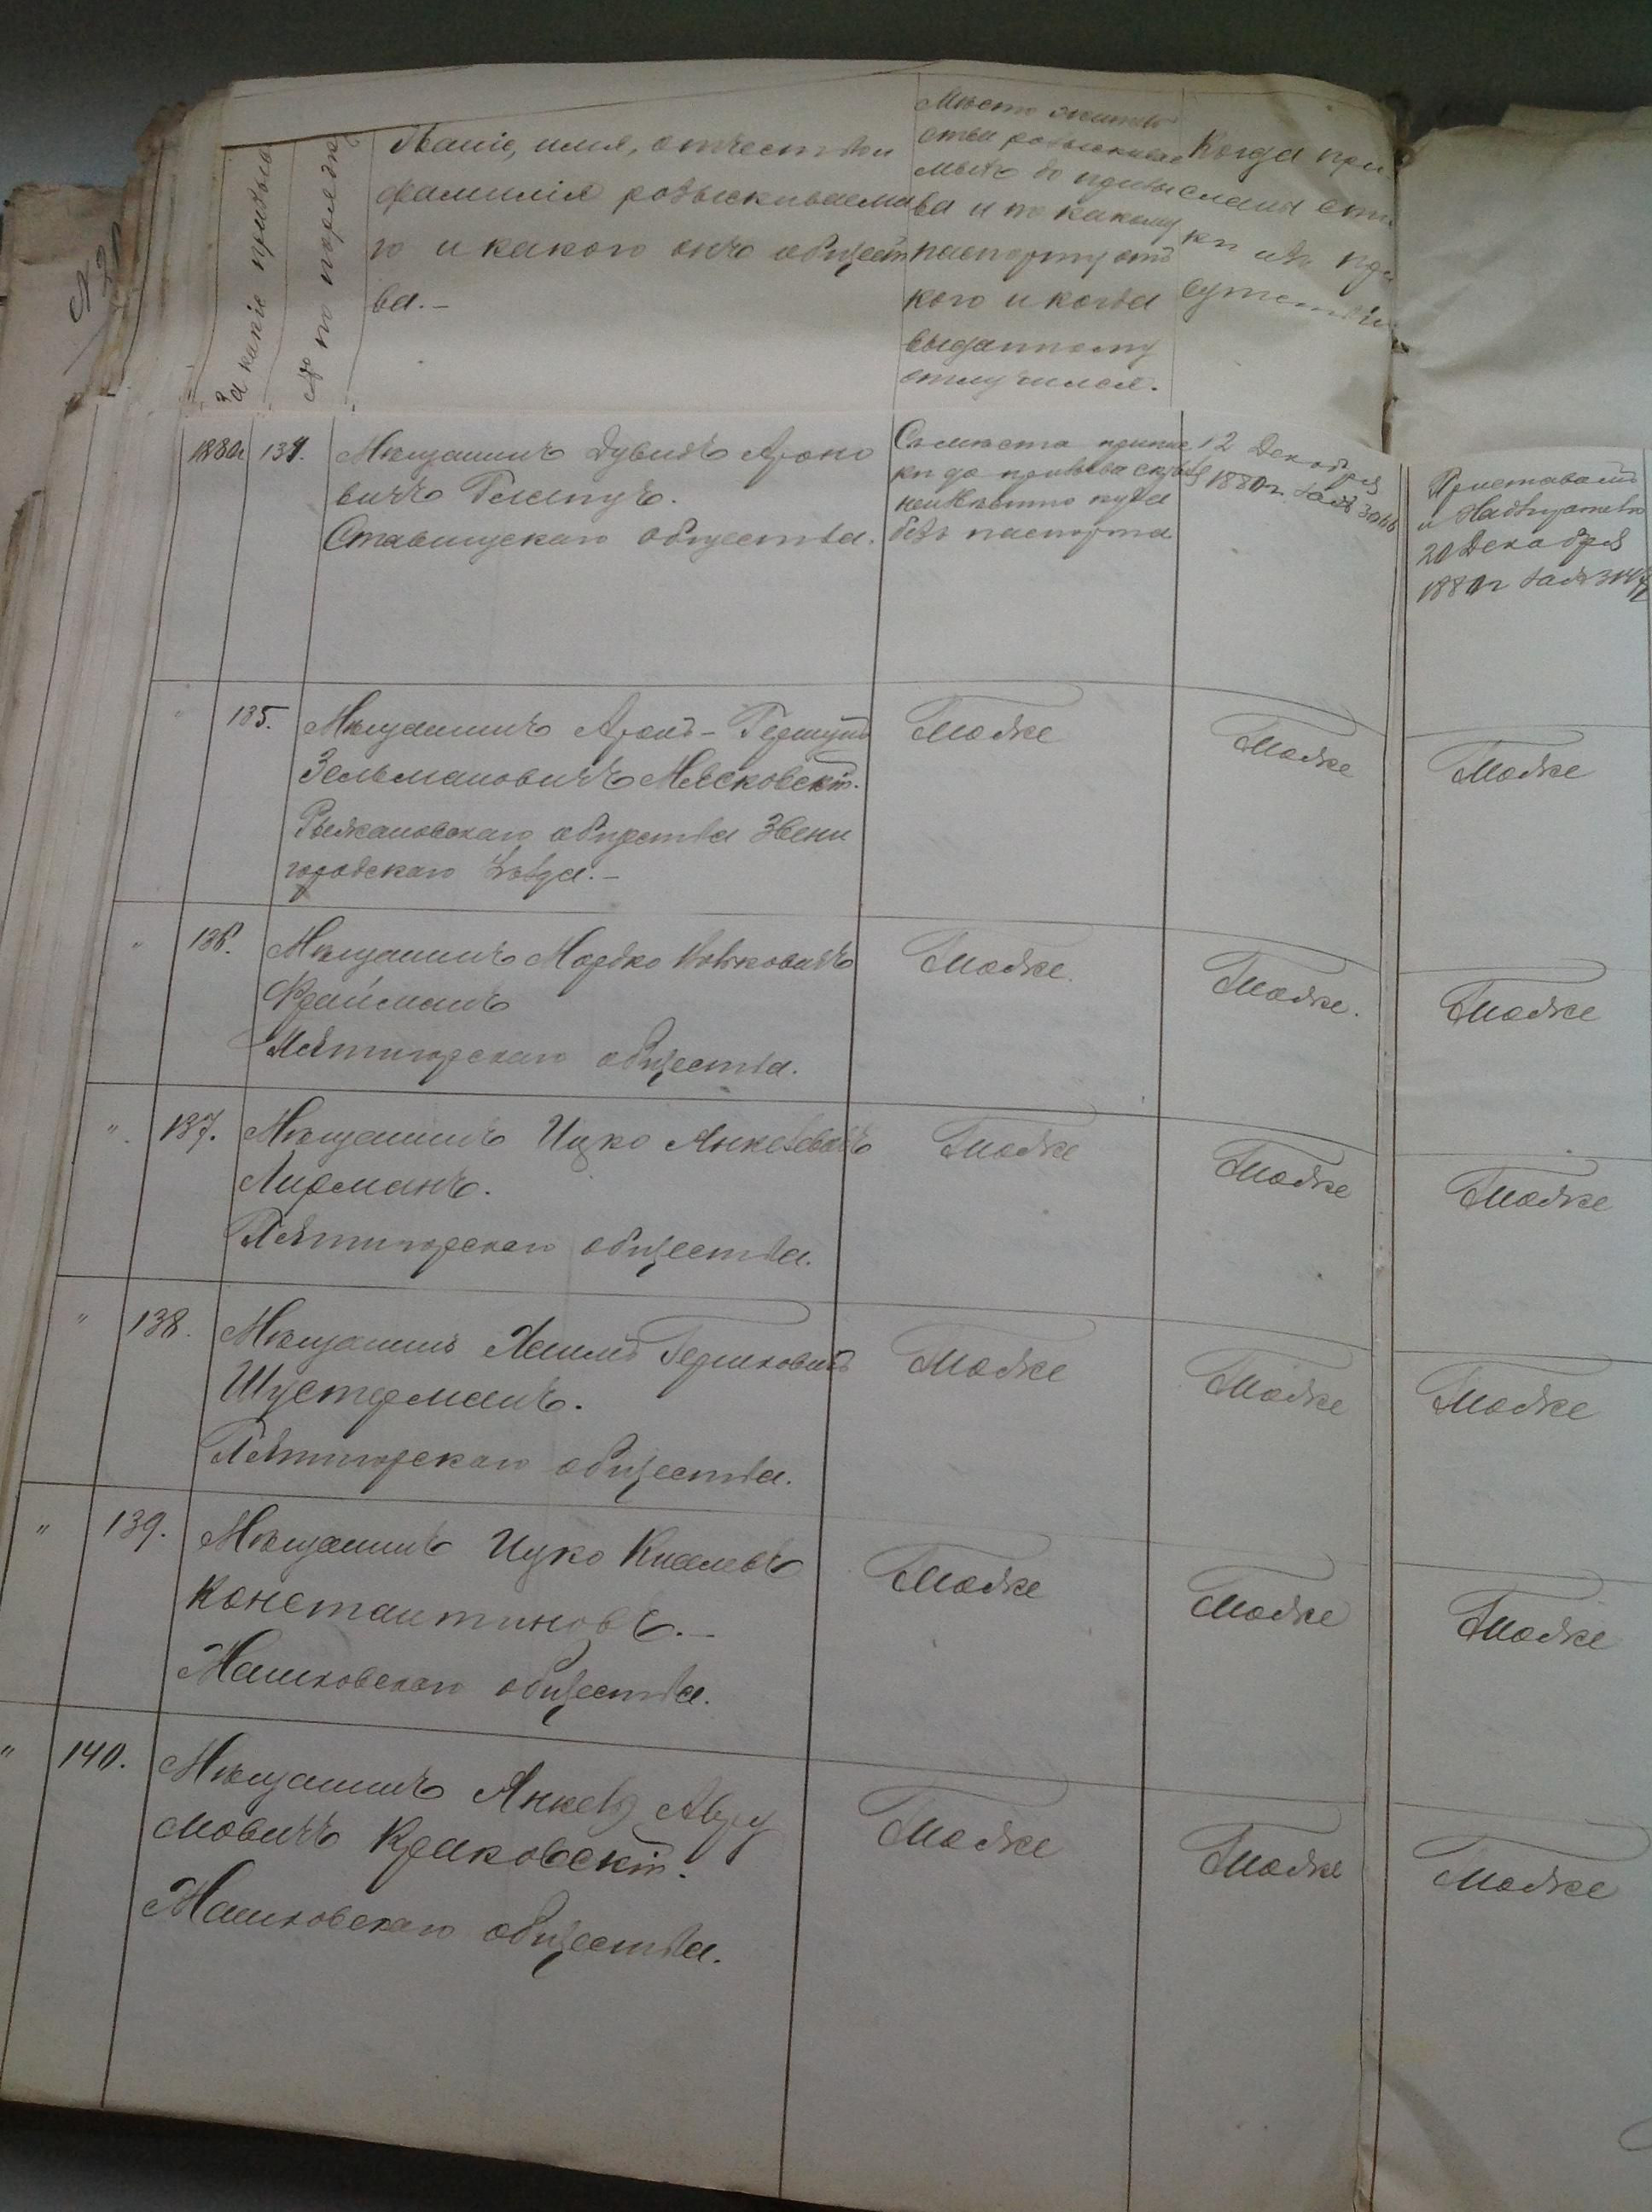 За какіе призывы
№ по порядку
Званіе, имя, отчество и
фамилія розыскиваема
го и какого онъ общест
ва.-
Мѣсто житель
ства розыскивае
маго до призы
ва и по какому
паспорту отъ
кого и когда
выданному
отлучился.
Когда при
сланы спи
ки изъ при
сутствія
1880г
134.
Мѣщанинъ Дувидъ Ароно
вичъ
Ставищскаго общества.
Съ мѣста припис
ки до призыва скрылся
неизвѣстно куда
безъ паспорта
12 Декабря
1880г. за № 3066
Приставамъ
и Надзирателю
20 Декабря
1880г за №
135.
Мѣщанинъ Аронъ-Гершунъ
Зельмановичъ Мясковскій.
Рыжановскаго общества Звени
городскаго уѣзда.-
Тоже
Тоже
Тоже
"
136.
Мѣщанинъ Мордко
Фрайманъ
Пятигорскаго общества.
Тоже.
Тоже.
Тоже
"
137.
Мѣщанинъ Ицко Янкелевичъ
Лирманъ.
Пятигорскаго общества.
Тоже
Тоже
Тоже
"
138.
Мѣщанинъ Хаимъ Гершковичъ
Шустерманъ.
Пятигорскаго общества.
Тоже
Тоже
Тоже
"
139.
Мѣщанинъ Ицко
Константиновъ.-
общества.
Тоже
Тоже
Тоже
"
140.
Мѣщанинъ Янкель Авру
мовичъ Краковскій.
общества.
Тоже
Тоже
Тоже